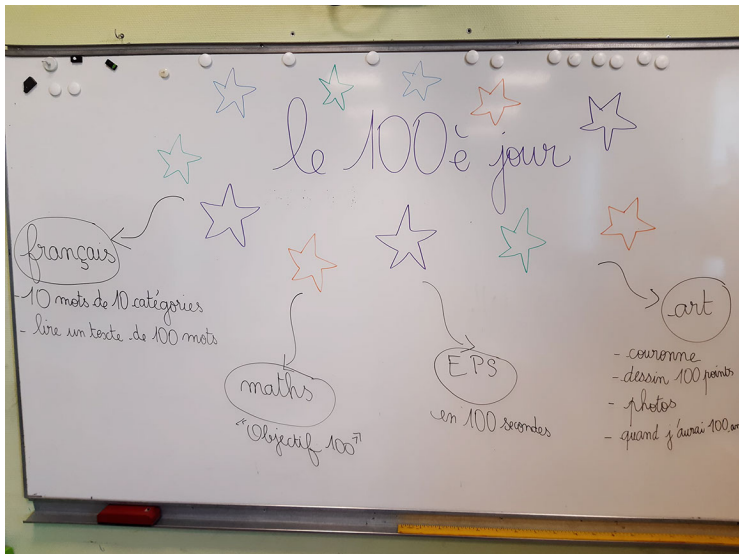 le 100è jour
français
- 10 mots de 10 catégories
- lire un texte de 100 mots
maths
"Objectif 100"
EPS
en 100 secondes
art
- couronne
- dessin 100 points
- photos
- quand j'aurai 100 an